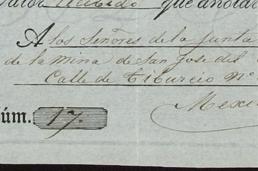 valor recibido que anotar
A los Señores de la Junta
de la Mina de San Jose del
Calle de Tiburcio Nº
Mexi
úm. 17.